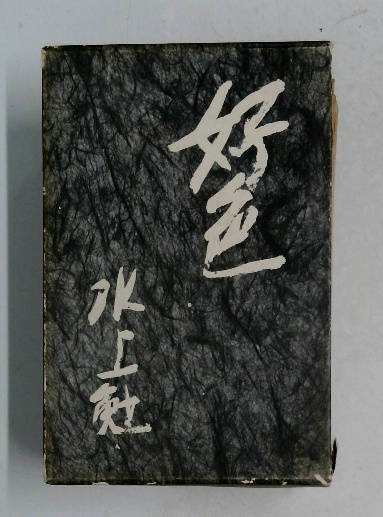 好色
水上勉